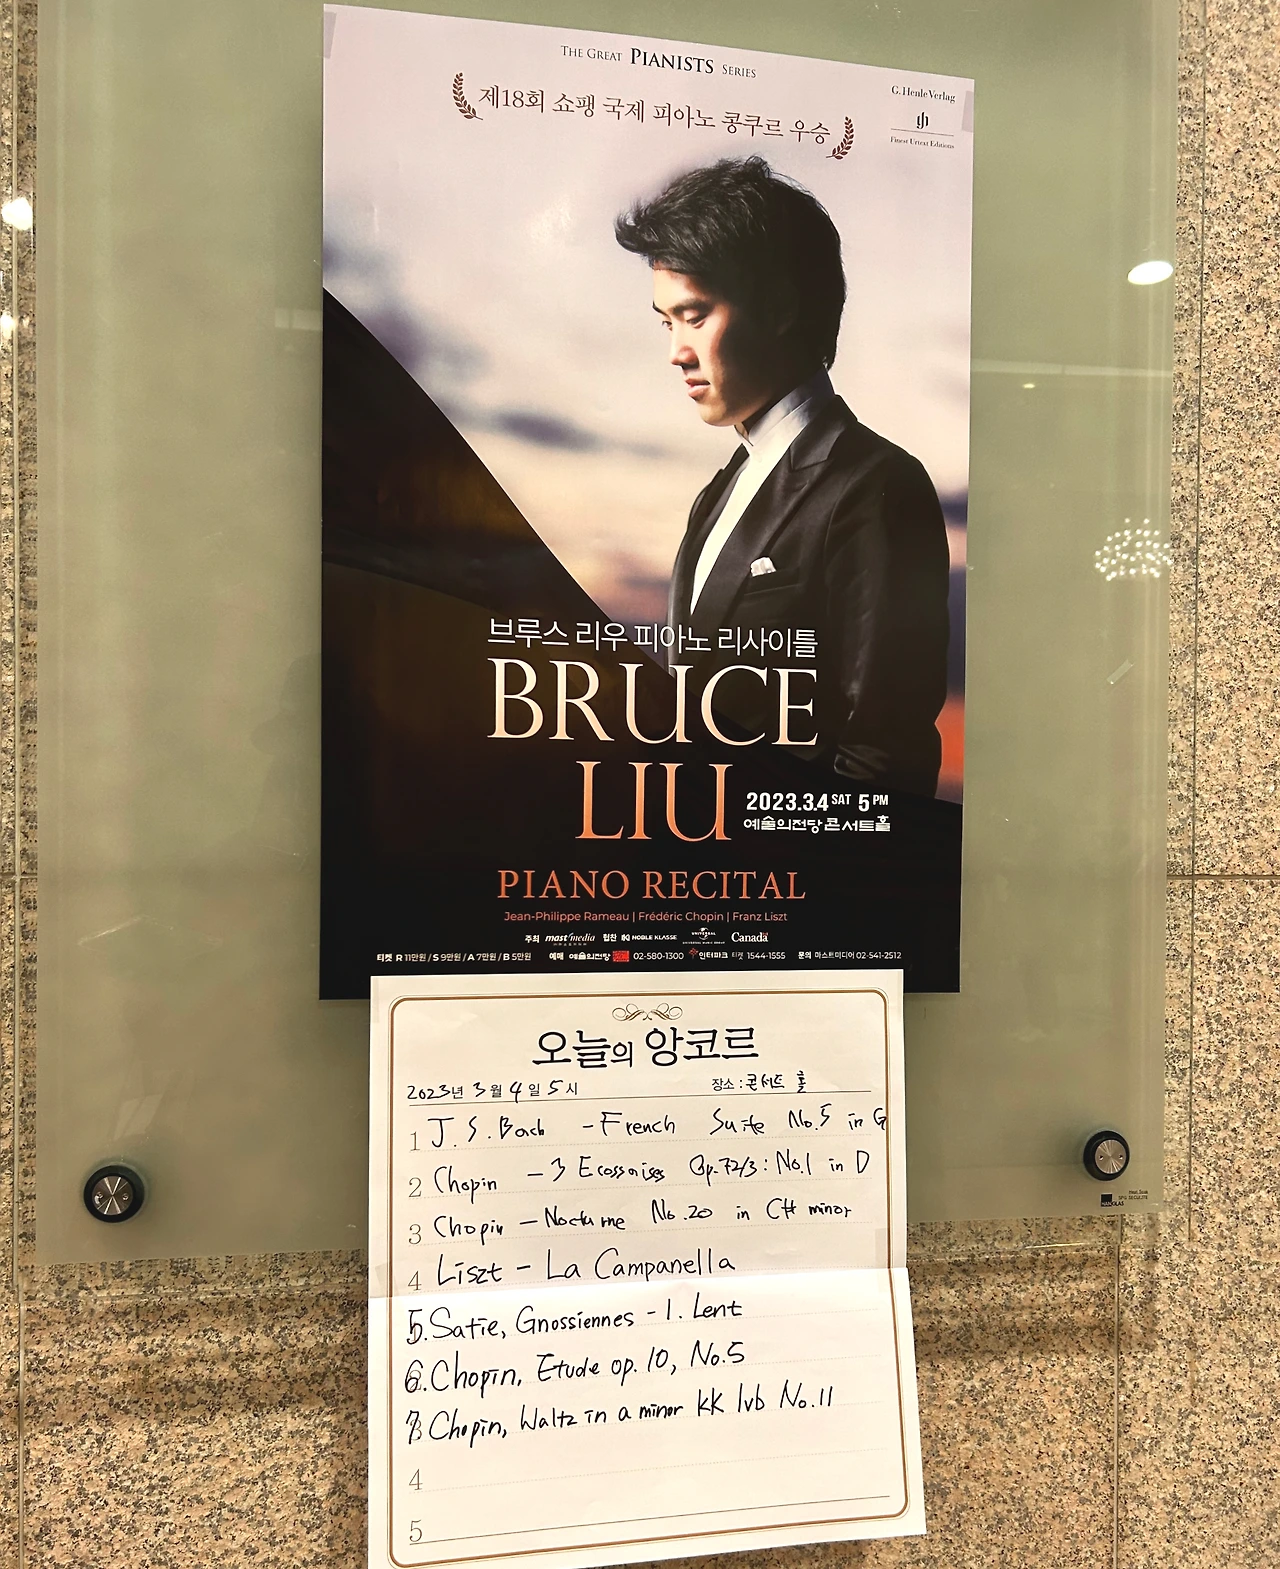 THE GREAT PIANISTS SERIES
제18회 쇼팽 국제 피아노 콩쿠르 우승
G. Henle Verlag
Finest Urtext Editions
브루스 리우 피아노 리사이틀
BRUCE
LIU
2023.3.4 SAT 5 PM
예술의전당 콘서트홀
PIANO RECITAL
Jean-Philippe Rameau | Frédéric Chopin | Franz Liszt
주최 mast media 협찬 NOBLE KLASSE UNIVERSAL Canada
티켓 R 11만원 / S 9만원 / A 7만원 / B 5만원 예매 예술의전당 02-580-1300 인터파크 티켓 1544-1555 문의 마스트미디어 02-541-2512
오늘의 앙코르
2023년 3월 4일 5시 장소 : 콘서트 홀
1 J. S. Bach - French Suite No.5 in G
2 Chopin - 3 Ecossaises Op.72/3 : No.1 in D
3 Chopin - Nocturne No.20 in C# minor
4 Liszt - La Campanella
5. Satie, Gnossiennes - 1. Lent
6. Chopin, Etude op. 10, No.5
7 Chopin, Waltz in a minor KK Ivb No.11
4
5